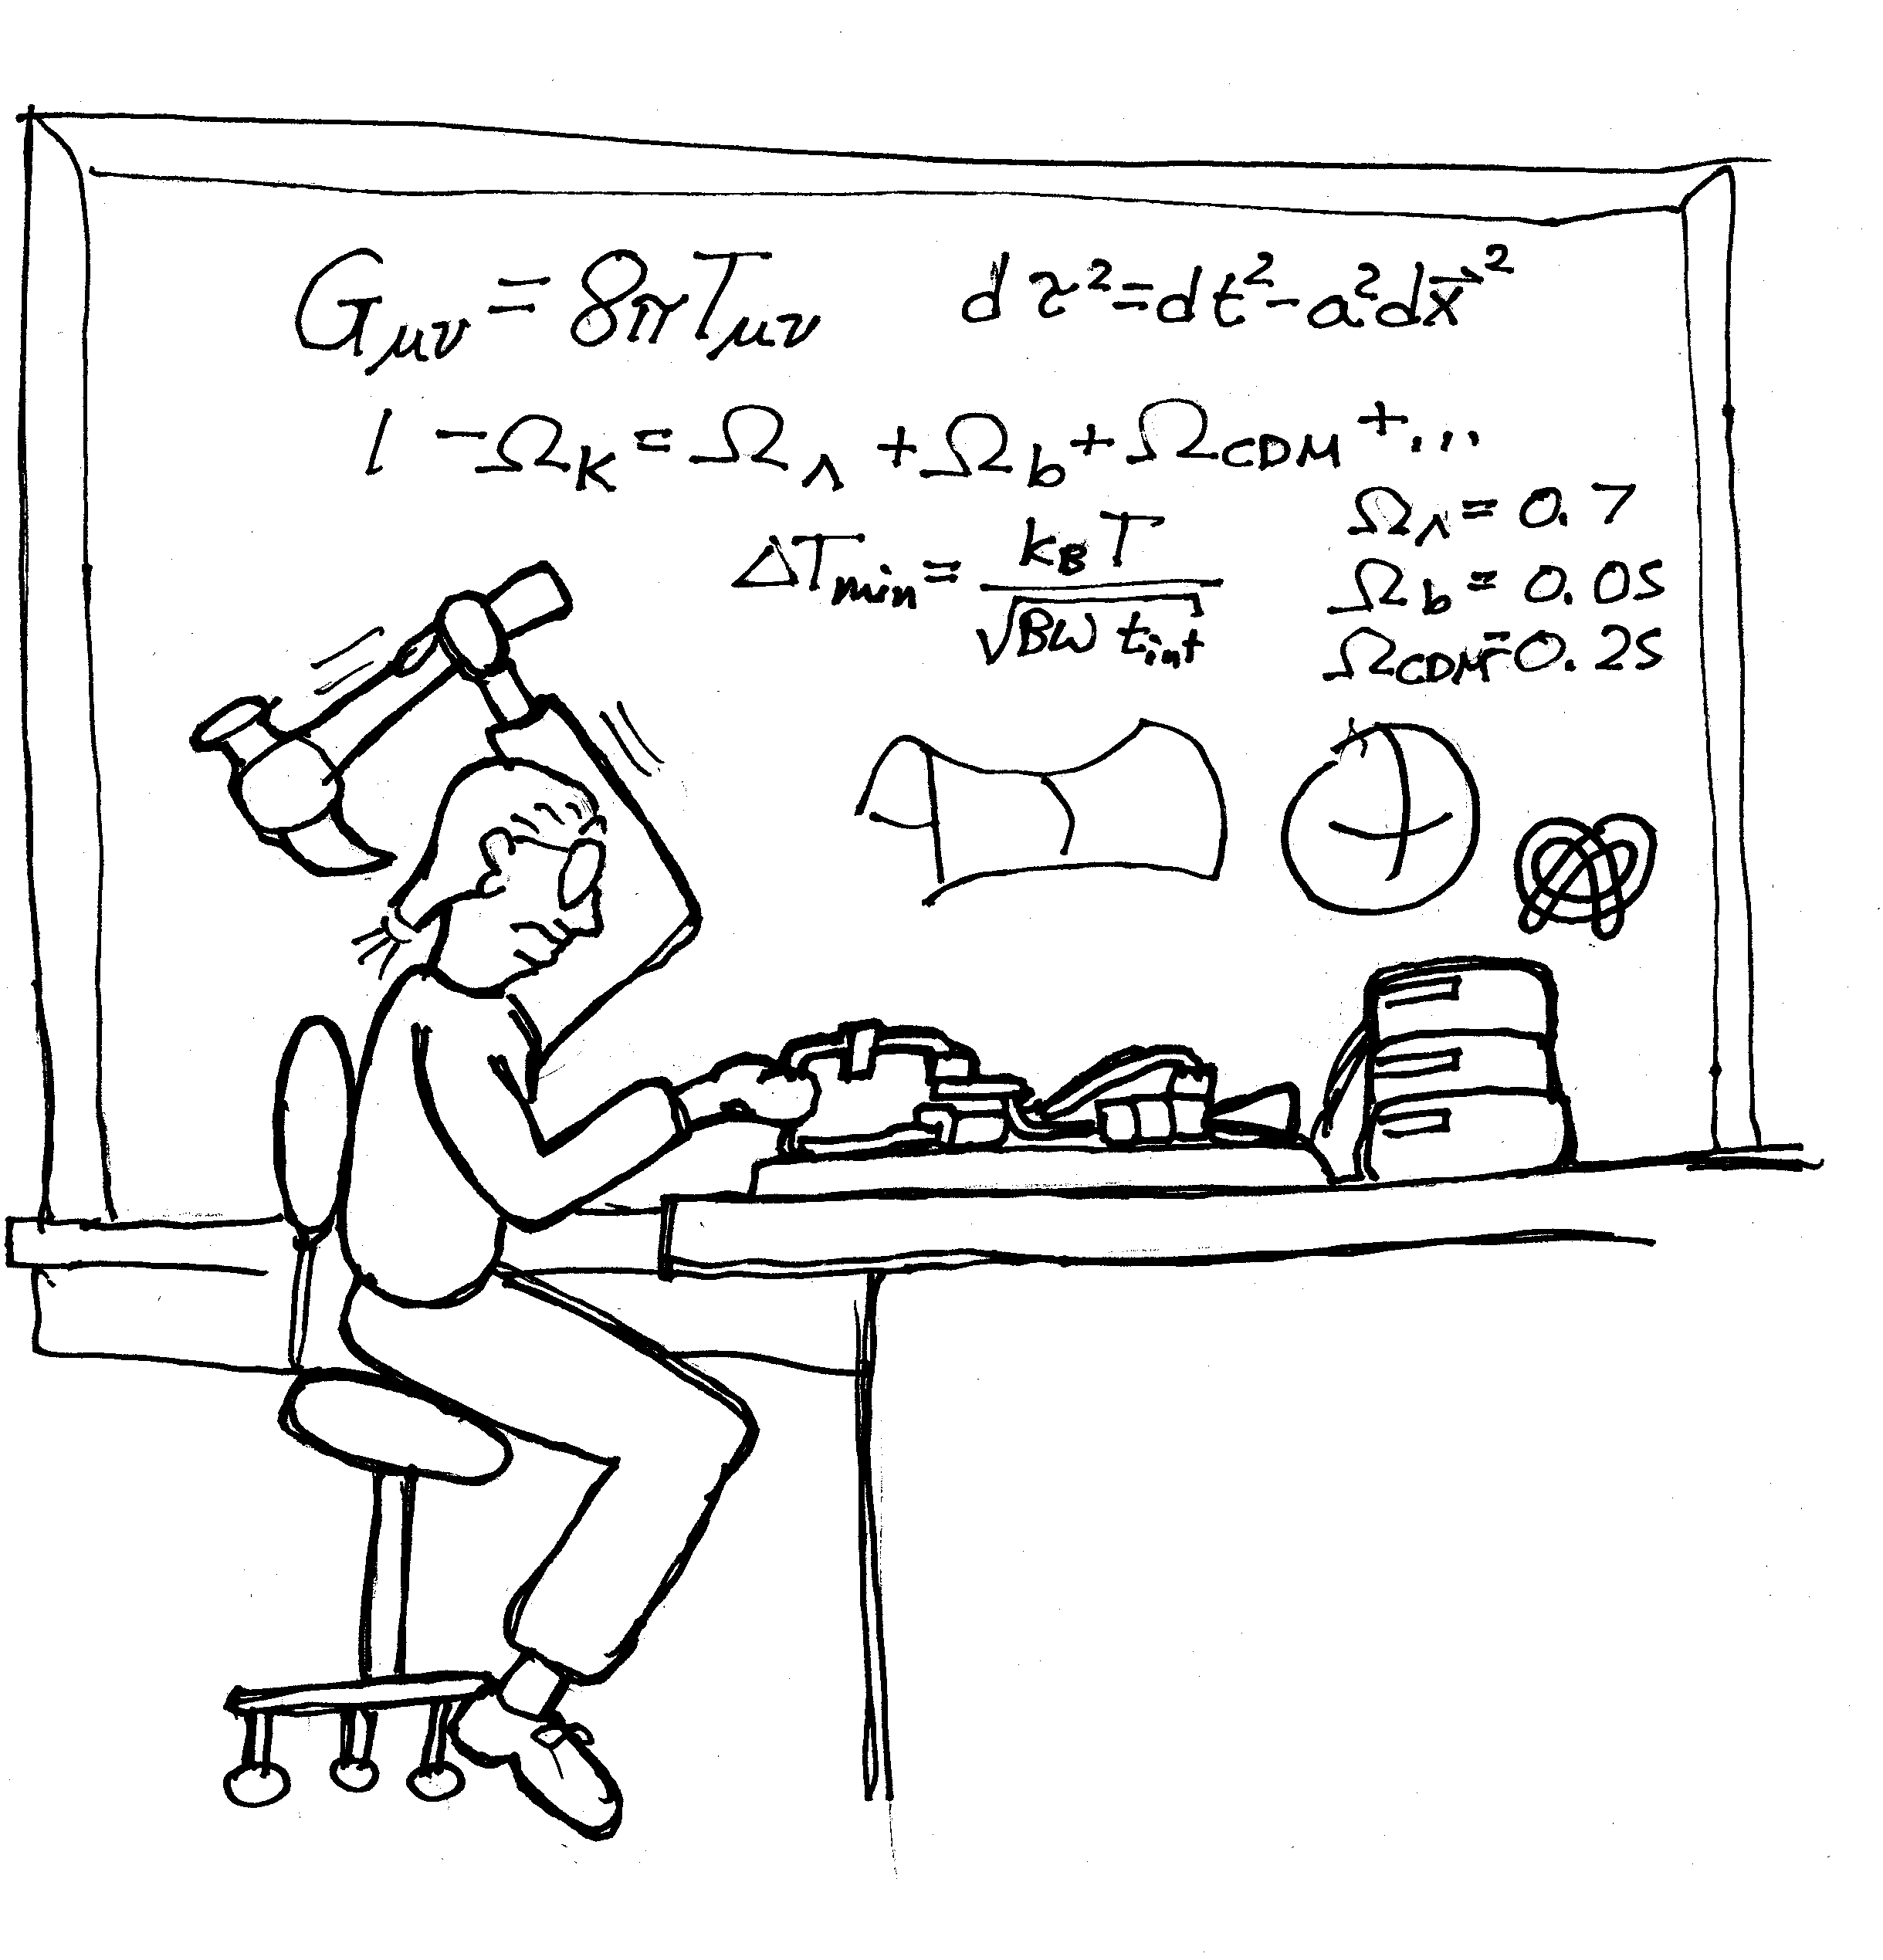 G_μν = 8πT_μν
dτ² = dt² - a²dx⃗²
1 - Ω_K = Ω_Λ + Ω_b + Ω_CDM + ...
ΔT_min = k_B T / √(BW t_int)
Ω_Λ = 0.7
Ω_b = 0.05
Ω_CDM = 0.25